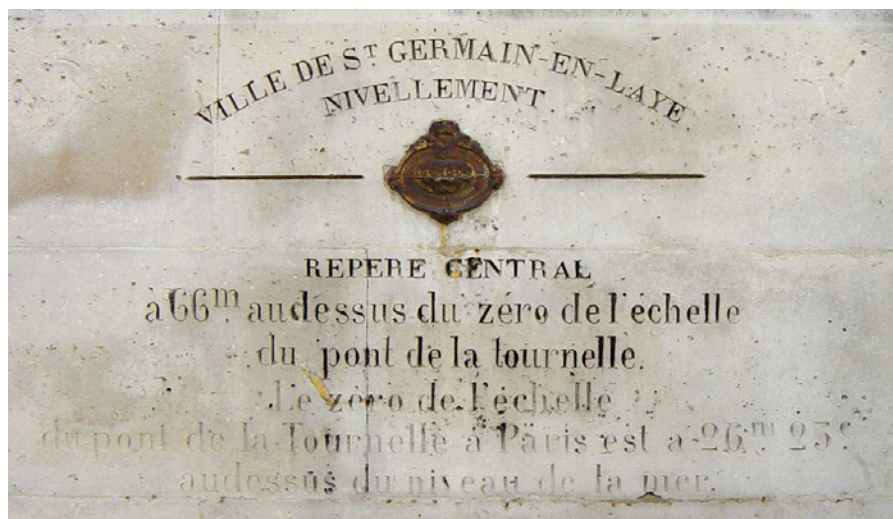 VILLE DE ST GERMAIN-EN-LAYE
NIVELLEMENT
REPERE CENTRAL
à 66m audessus du zéro de l'échelle
du pont de la tournelle.
Le zéro de l'échelle
du pont de la Tournelle à Paris est à 26m 25c
audessus du niveau de la mer.